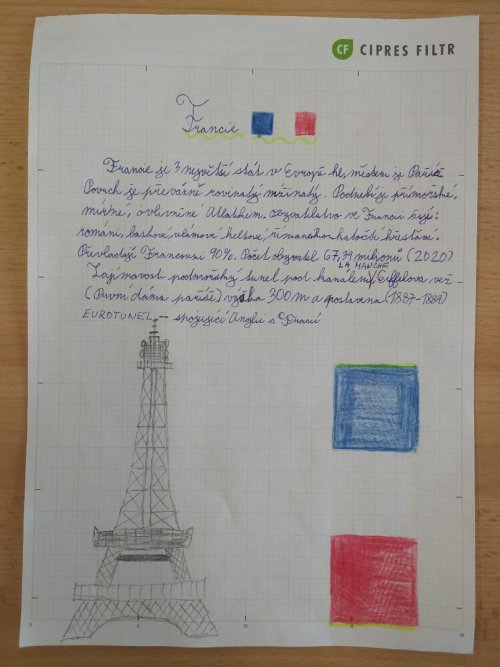 CF CIPRES FILTR
Francie
Francie je 3 největší stát v Evropě hl. městem je Paříž
Povrch je převážně rovinatý Podnebí je přímořské,
mírné, ovlivněné Atlantikem. ve Francii žijí:
románi, baskové, křesťané.
Převládají Francouzi 90%. Počet obyvatel 67,39 milionů (2020)
LA MANCHE
Zajímavosti podmořský tunel pod kanálem Eiffelova věž
(První dáma paříže) výška 300 m a postavena (1887-1889)
EUROTUNEL - spojující Anglii s Francií